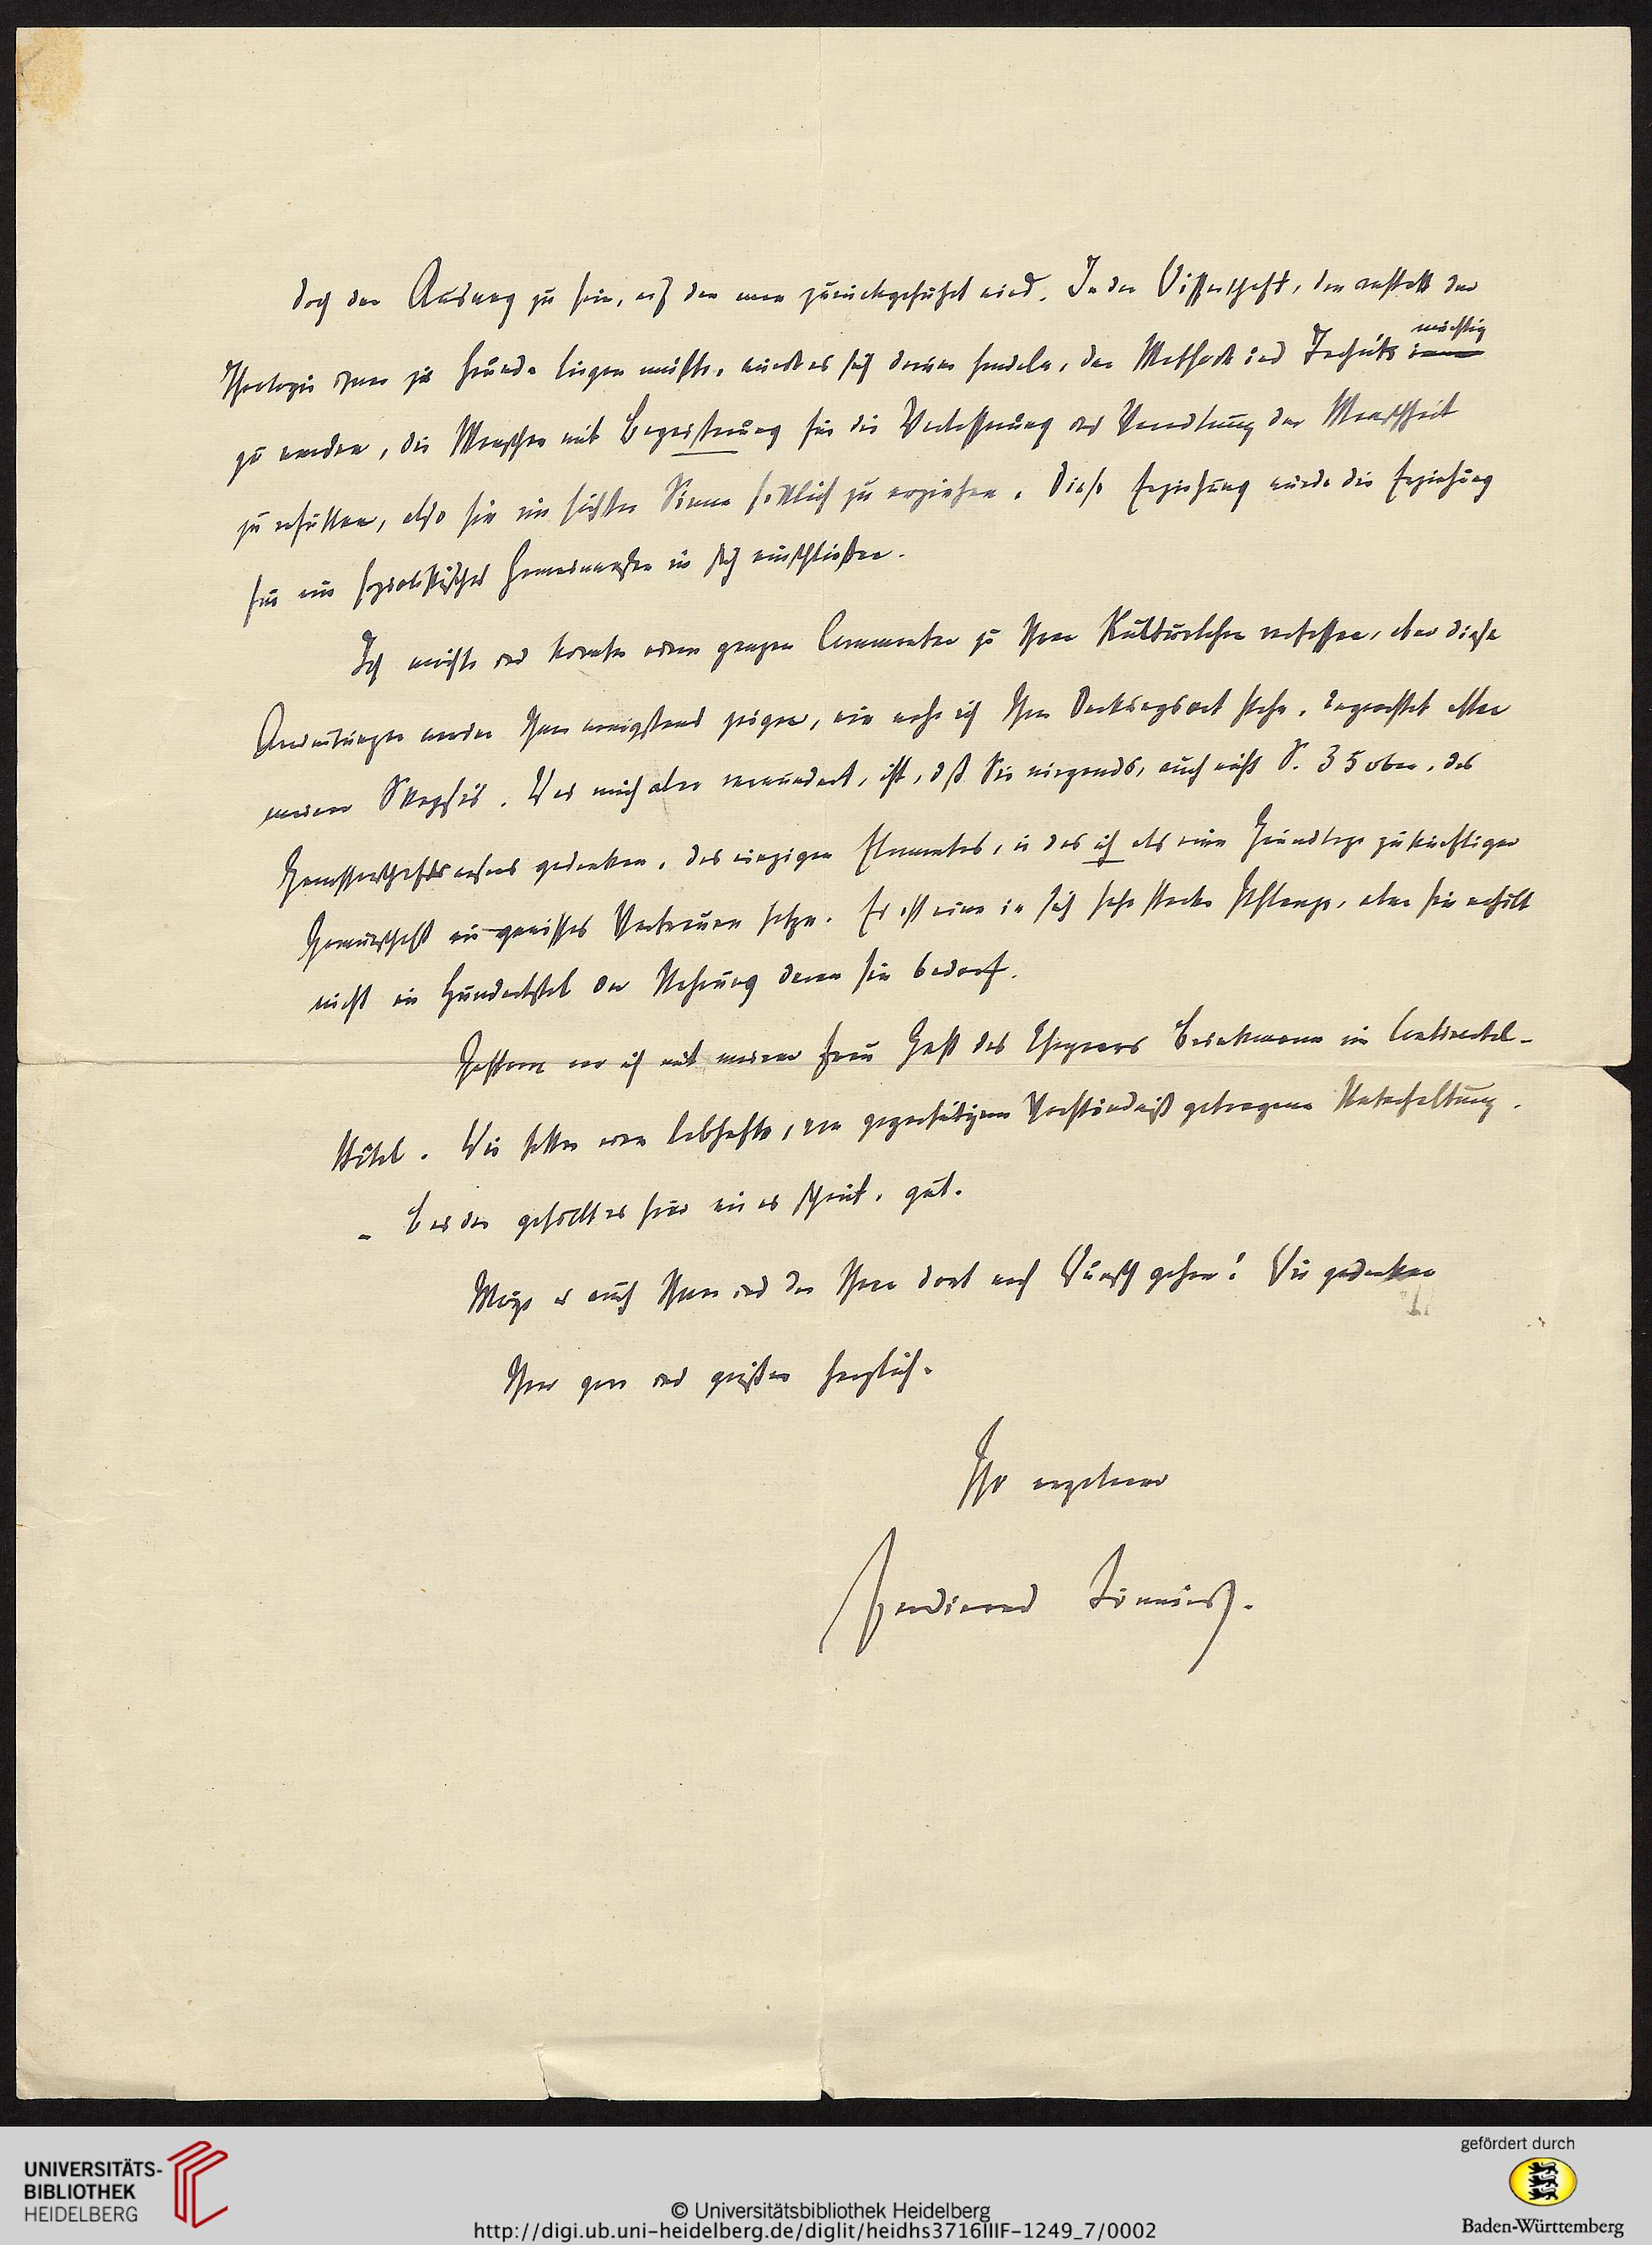 doch der Ausweg zu sein, auf den man zurückgeführt wird. In der Wissenschaft, die anstatt der
mächtig
Theologie ihnen zu Grunde liegen müßte, würde es sich darum handeln, der Methode und Technik
zu werden, die Menschen mit Begeisterung für die Verbesserung und Veredlung der Menschheit
zu erfüllen, also sie im höchsten Sinne sittlich zu erziehen. Diese Erziehung würde die Erziehung
für ein sozialistisches Gemeinwesen in sich einschließen.
Ich möchte und könnte einen ganzen Commentar zu Ihrer Kulturlehre verfassen, aber diese
Andeutungen werden Ihnen wenigstens zeigen, wie nahe ich Ihrer Denkungsart stehe, ungeachtet aller
meiner Skepsis. Was mich aber verwundert, ist, daß Sie nirgends, auch nicht S. 35 oben, des
Genossenschaftswesens gedenken, des einzigen Elementes, in das ich als eine Grundlage zukünftiger
Gemeinschaft ein gewisses Vertrauen setze. Es ist eine in sich sehr starke Pflanze, aber sie erhält
nicht ein Hundertstel der Nahrung deren sie bedarf.
Gestern war ich mit meiner Frau Gast des Ehepaars Brinkmann im Continental-
Hôtel. Wir hatten eine lebhafte, von gegenseitigem Verständniß getragene Unterhaltung.
Beiden gefällt es hier wie es scheint, gut.
Möge es auch Ihnen und den Ihren dort nach Wunsch gehen! Wir gedenken
Ihrer gern und grüßen herzlich.
Ihr ergebener
Ferdinand Tönnies.
UNIVERSITÄTS-
BIBLIOTHEK
HEIDELBERG
gefördert durch
Baden-Württemberg
© Universitätsbibliothek Heidelberg
http://digi.ub.uni-heidelberg.de/diglit/heidhs3716IIIF-1249_7/0002